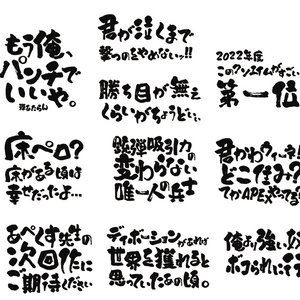 もう俺、
パンチで
いいや。
弾もたらん
君が泣くまで
撃つのをやめないッ!!
勝ち目が無え
くらいがちょうどいい。
2022年度
このクソエイムがすごい
第一位
床ペロ?
床がある頃は
幸せだったよ…
銃弾吸引力の
変わらない
唯一人の兵士
君かわウィーネ!
どこ住み?
てかAPEXやってる
あぺくす先生の
次回作に
ご期待ください
ディボーションがあれば
世界を獲れると
思っていたあの頃。
俺より強い
ボコられに行